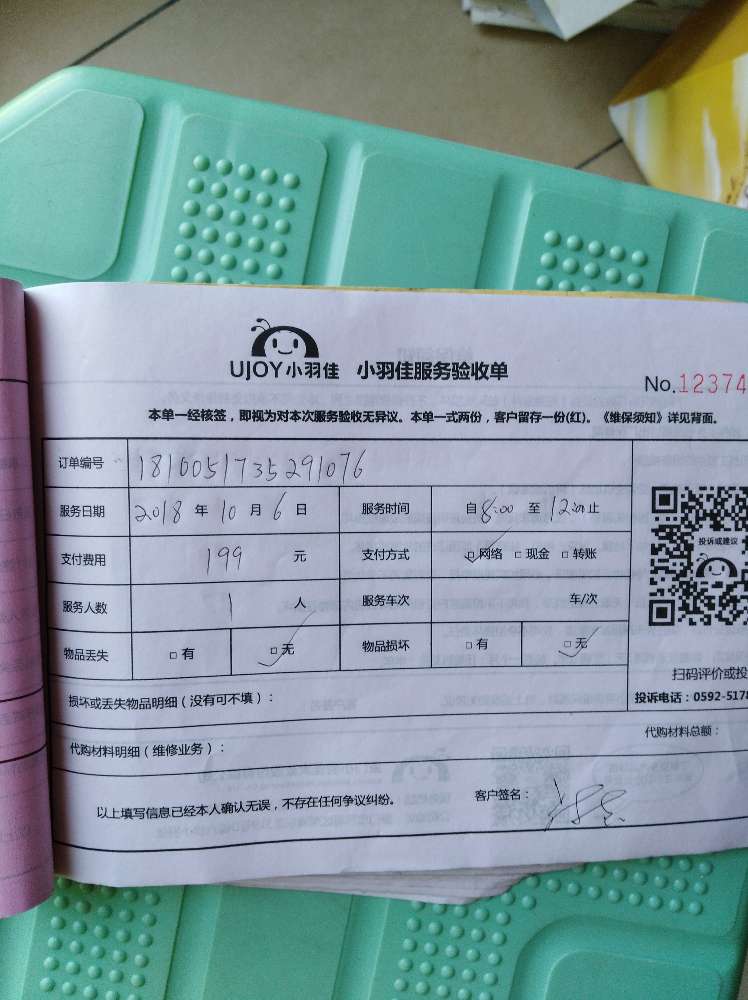 UJOY小羽佳 小羽佳服务验收单
No.12374
本单一经核签，即视为对本次服务验收无异议。本单一式两份，客户留存一份(红)。《维保须知》详见背面。
订单编号 1810051735291076
服务日期 2018年10月6日 服务时间 自8:00至12:00止
支付费用 199元 支付方式 □网络 □现金 □转账
服务人数 1人 服务车次 车/次
物品丢失 □有 □无 物品损坏 □有 □无
投诉或建议
扫码评价或投
投诉电话：0592-5178
损坏或丢失物品明细（没有可不填）：
代购材料明细（维修业务）： 代购材料总额：
以上填写信息已经本人确认无误，不存在任何争议纠纷。 客户签名：